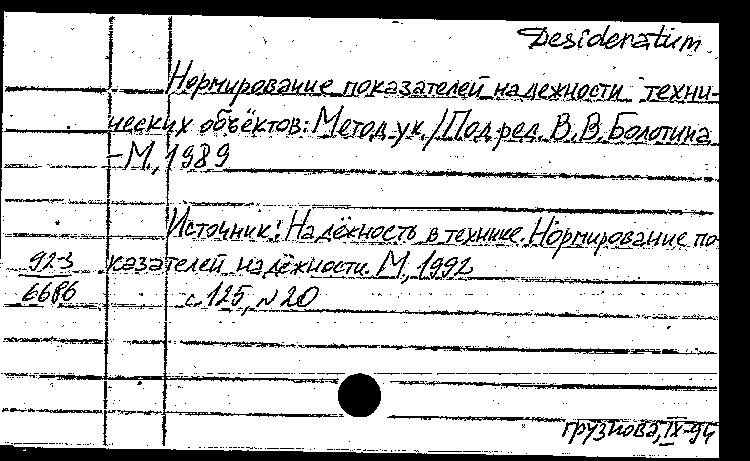 Desideratum
Нормирование показателей надежности техни-
ческих объёктов: Метод. ук. / Под ред. В.В. Болотина
- М., 1989
Источник: Надёжность в технике. Нормирование по-
923 казателей надёжности. М., 1992
6686 с. 125, № 20
грузнова, IX-94